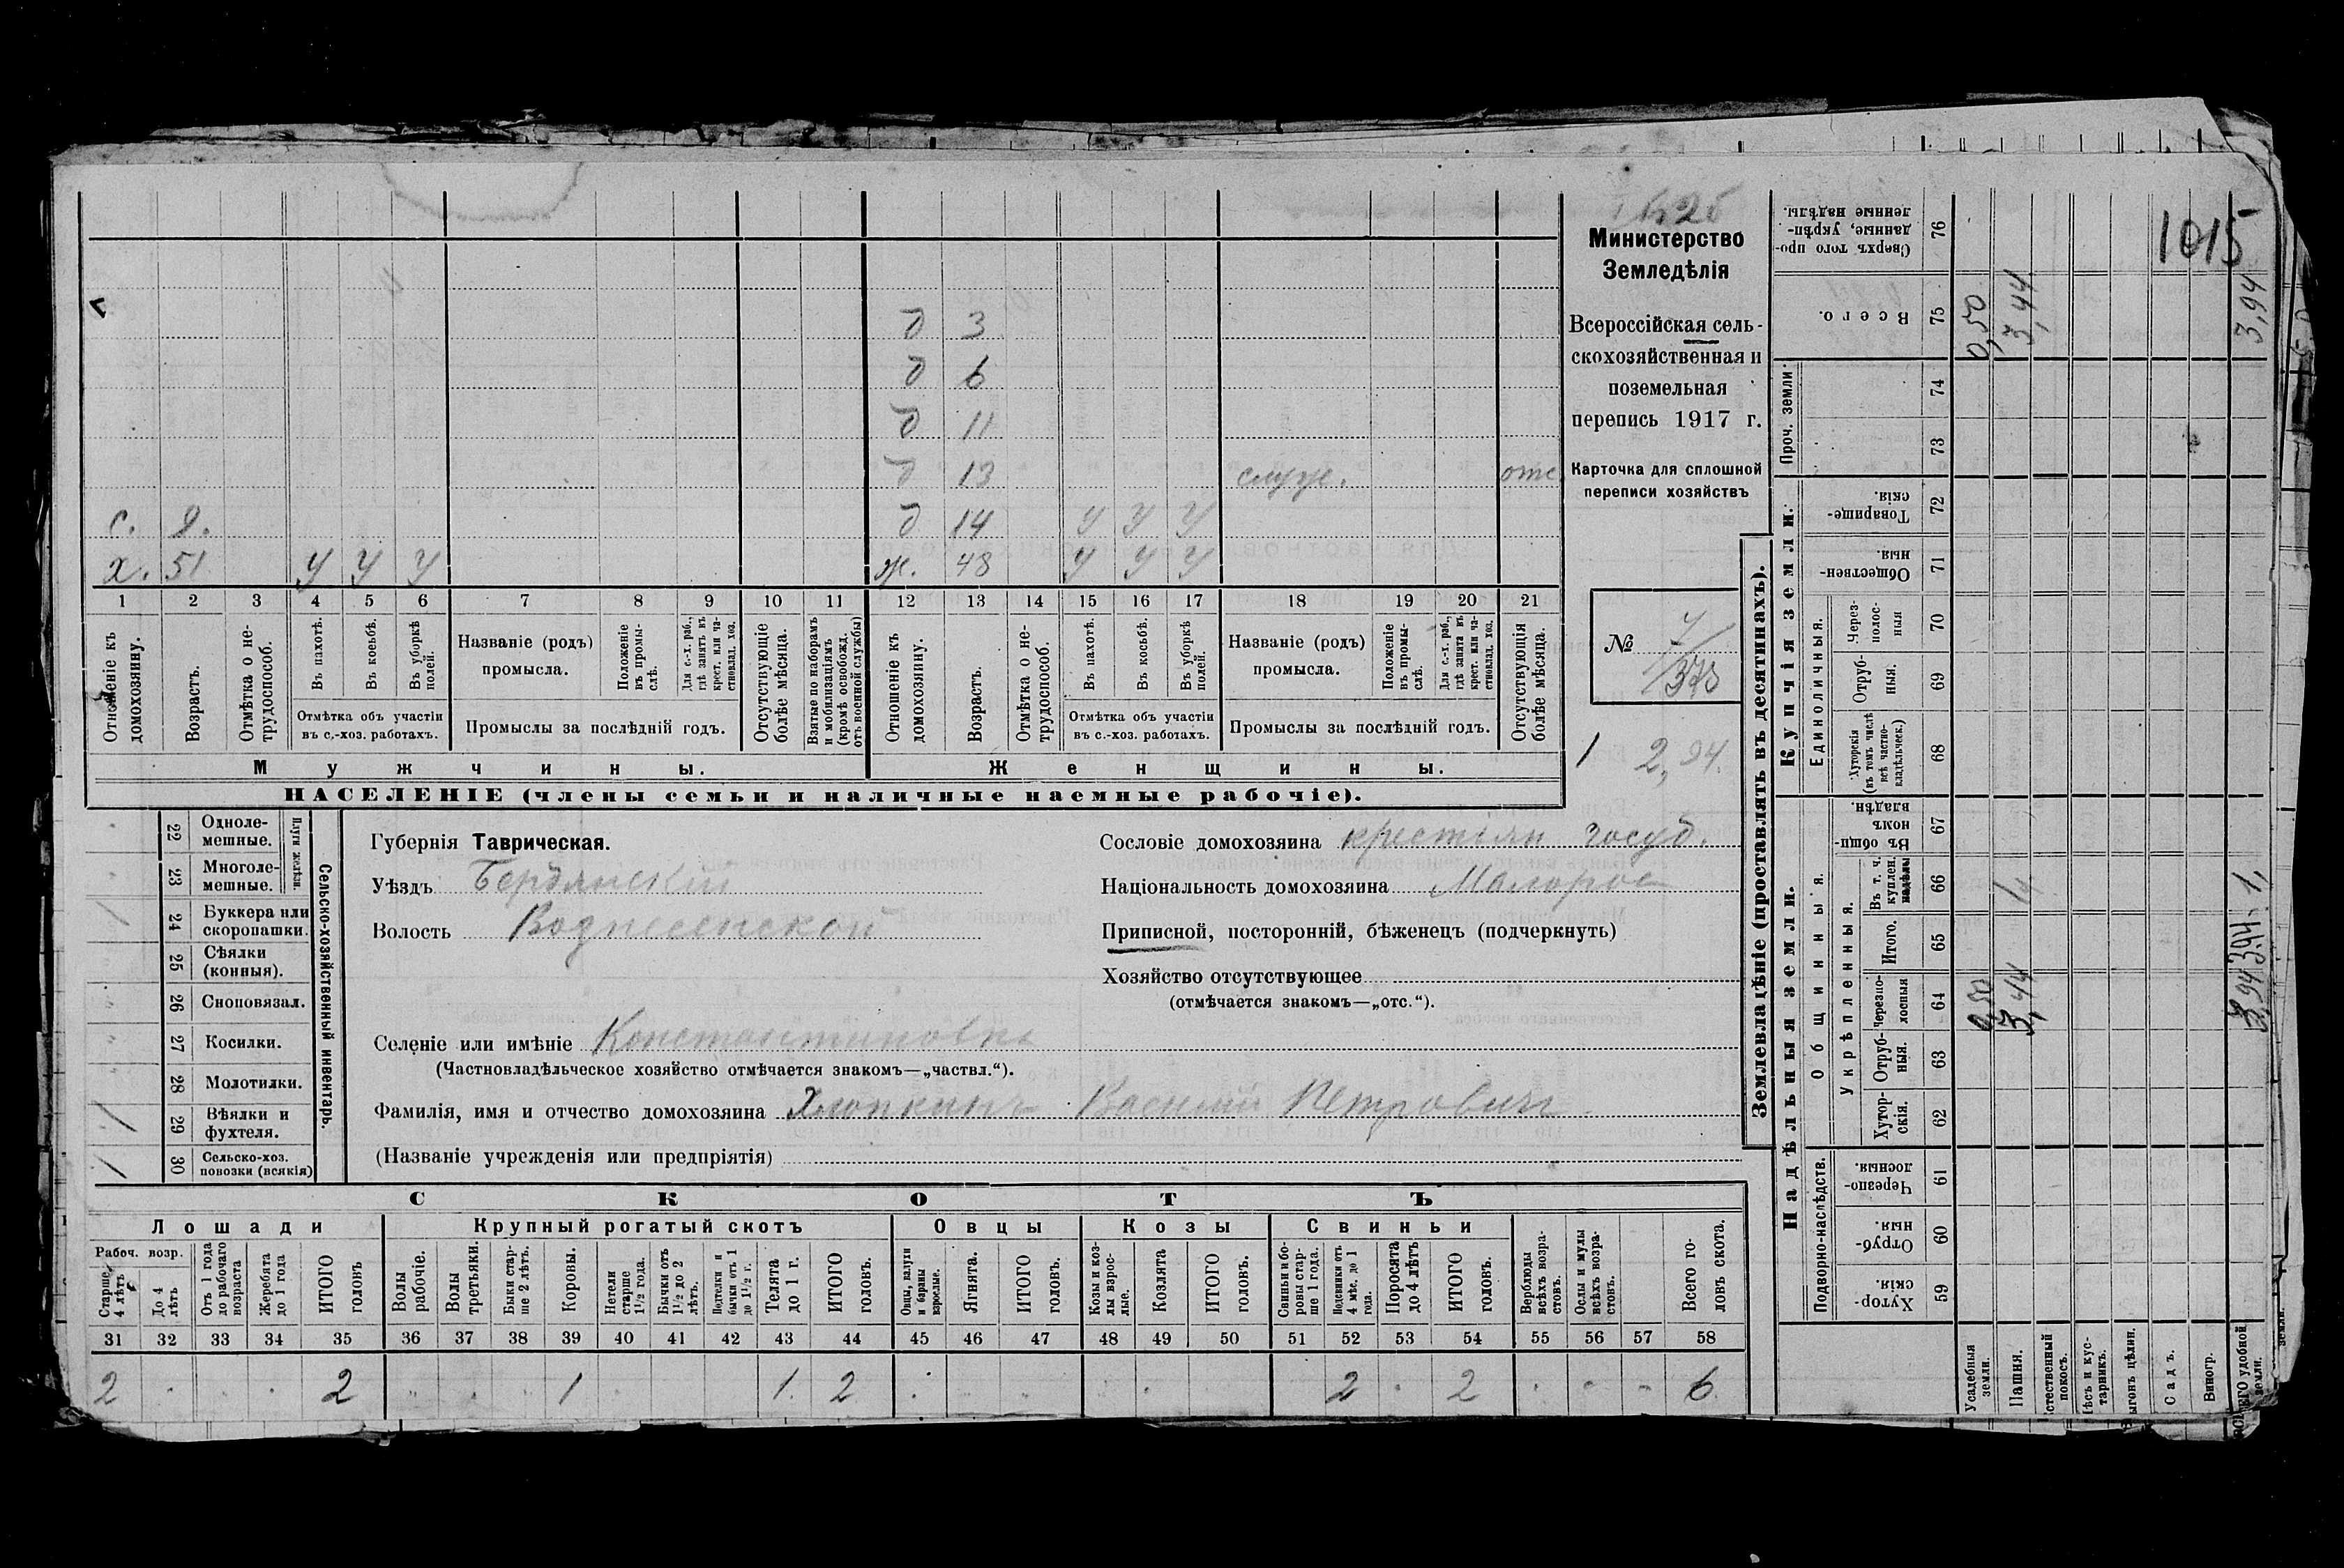 1015
Министерство
Земледѣлія
Всероссійская сель-
скохозяйственная и
поземельная
перепись 1917 г.
Карточка для сплошной
переписи хозяйствъ
№
1 2,94.
д 3
д 6
д 11
д 13 служ. отс
с. 9. д 14 у у у
х. 51 у у у ж. 48 у у у
1 2 3 4 5 6 7 8 9 10 11 12 13 14 15 16 17 18 19 20 21
Отношеніе къ домохозяину.
Возрастъ.
Отмѣтка о не-трудоспособ.
Въ пахотѣ.
Въ косьбѣ.
Въ уборкѣ полей.
Отмѣтка объ участіи
въ с.-хоз. работахъ.
Названіе (родъ)
промысла.
Положеніе въ промы-слѣ.
Для с.-х. раб., гдѣ занятъ въ крест. или ча-стновлад. хоз.
Промыслы за послѣдній годъ.
Отсутствующіе болѣе мѣсяца.
Взятые по наборамъ и мобилизаціямъ (кромѣ освобожд. отъ военной службы)
Отношеніе къ домохозяину.
Возрастъ.
Отмѣтка о не-трудоспособ.
Въ пахотѣ.
Въ косьбѣ.
Въ уборкѣ полей.
Отмѣтка объ участіи
въ с.-хоз. работахъ.
Названіе (родъ)
промысла.
Положеніе въ промы-слѣ.
Для с.-х. раб., гдѣ занята въ крест. или ча-стновлад. хоз.
Промыслы за послѣдній годъ.
Отсутствующія болѣе мѣсяца.
Мужчины. Женщины.
НАСЕЛЕНІЕ (члены семьи и наличные наемные рабочіе).
Сельско-хозяйственный инвентарь.
Плуги желѣзн.
22 Одноле-мешные.
23 Многоле-мешные.
/ 24 Буккера или скоропашки.
25 Сѣялки (конныя).
26 Сноповязал.
27 Косилки.
28 Молотилки.
/ 29 Вѣялки и фухтеля.
/ 30 Сельско-хоз. повозки (всякія)
Губернія Таврическая.
Уѣздъ Бердянскій
Волость Вознесенской
Сословіе домохозяина крестіян госуд.
Національность домохозяина Малорос
Приписной, посторонній, бѣженецъ (подчеркнуть)
Хозяйство отсутствующее
(отмѣчается знакомъ—„отс.“).
Селеніе или имѣніе Константиновка
(Частновладѣльческое хозяйство отмѣчается знакомъ—„частвл.“).
Фамилія, имя и отчество домохозяина Хлопкинъ Василій Петрович
(Названіе учрежденія или предпріятія)
СКОТЪ
Лошади Крупный рогатый скотъ Овцы Козы Свиньи
Рабоч. возр.
Старше 4 лѣтъ
До 4 лѣтъ
Отъ 1 года до рабочаго возраста
Жеребята до 1 года
ИТОГО головъ
Волы рабочіе.
Волы третьяки.
Быки стар-ше 2 лѣтъ.
Коровы.
Нетели старше 1½ года.
Бычки отъ 1½ до 2 лѣтъ.
Подтелки и бычки отъ 1 до 1½ г.
Телята до 1 г.
ИТОГО головъ.
Овцы, валухи и бараны взрослые.
Ягнята.
ИТОГО головъ.
Козы и коз-лы взрос-лые.
Козлята
ИТОГО головъ.
Свиньи и бо-ровы стар-ше 1 года.
Подсвинки отъ 4 мѣс. до 1 года.
Поросята до 4 лѣтъ
ИТОГО головъ.
Верблюды всѣхъ возра-стовъ.
Ослы и мулы всѣхъ возра-стовъ.
Всего го-ловъ скота.
31 32 33 34 35 36 37 38 39 40 41 42 43 44 45 46 47 48 49 50 51 52 53 54 55 56 57 58
2 2 1 1 2 2 2 6
Землевладѣніе (проставлять въ десятинахъ).
Надѣльныя земли. Купчія земли.
Подворно-наслѣдств.
Общинныя.
Укрѣпленныя.
Единоличныя.
Проч. земли.
Хутор-скія. 59
Отруб-ныя. 60
Черезпо-лосныя. 61
Хутор-скія. 62
Отруб-ныя. 63
Черезпо-лосныя 64
Итого. 65
Въ т. ч. куплен. надѣлы 66
Въ общи-номъ владѣн. 67
Хуторскія (въ томъ числѣ всѣ частно-владѣльческ.) 68
Отруб-ныя. 69
Через-полос-ныя 70
Обществен-ныя. 71
Товарище-скія. 72
73
74
Всего. 75
Сверхъ того про-данные, укрѣп-ленные надѣлы. 76
Усадебныя земли. 0,50 0,50
Пашня. 3,44 3,44
Естественный покосъ.
Лѣсъ и кус-тарникъ.
Выгонъ цѣлин.
Садъ.
Виногр.
ВСЕГО удобной земли. 3,94 3,94 1, 3,94